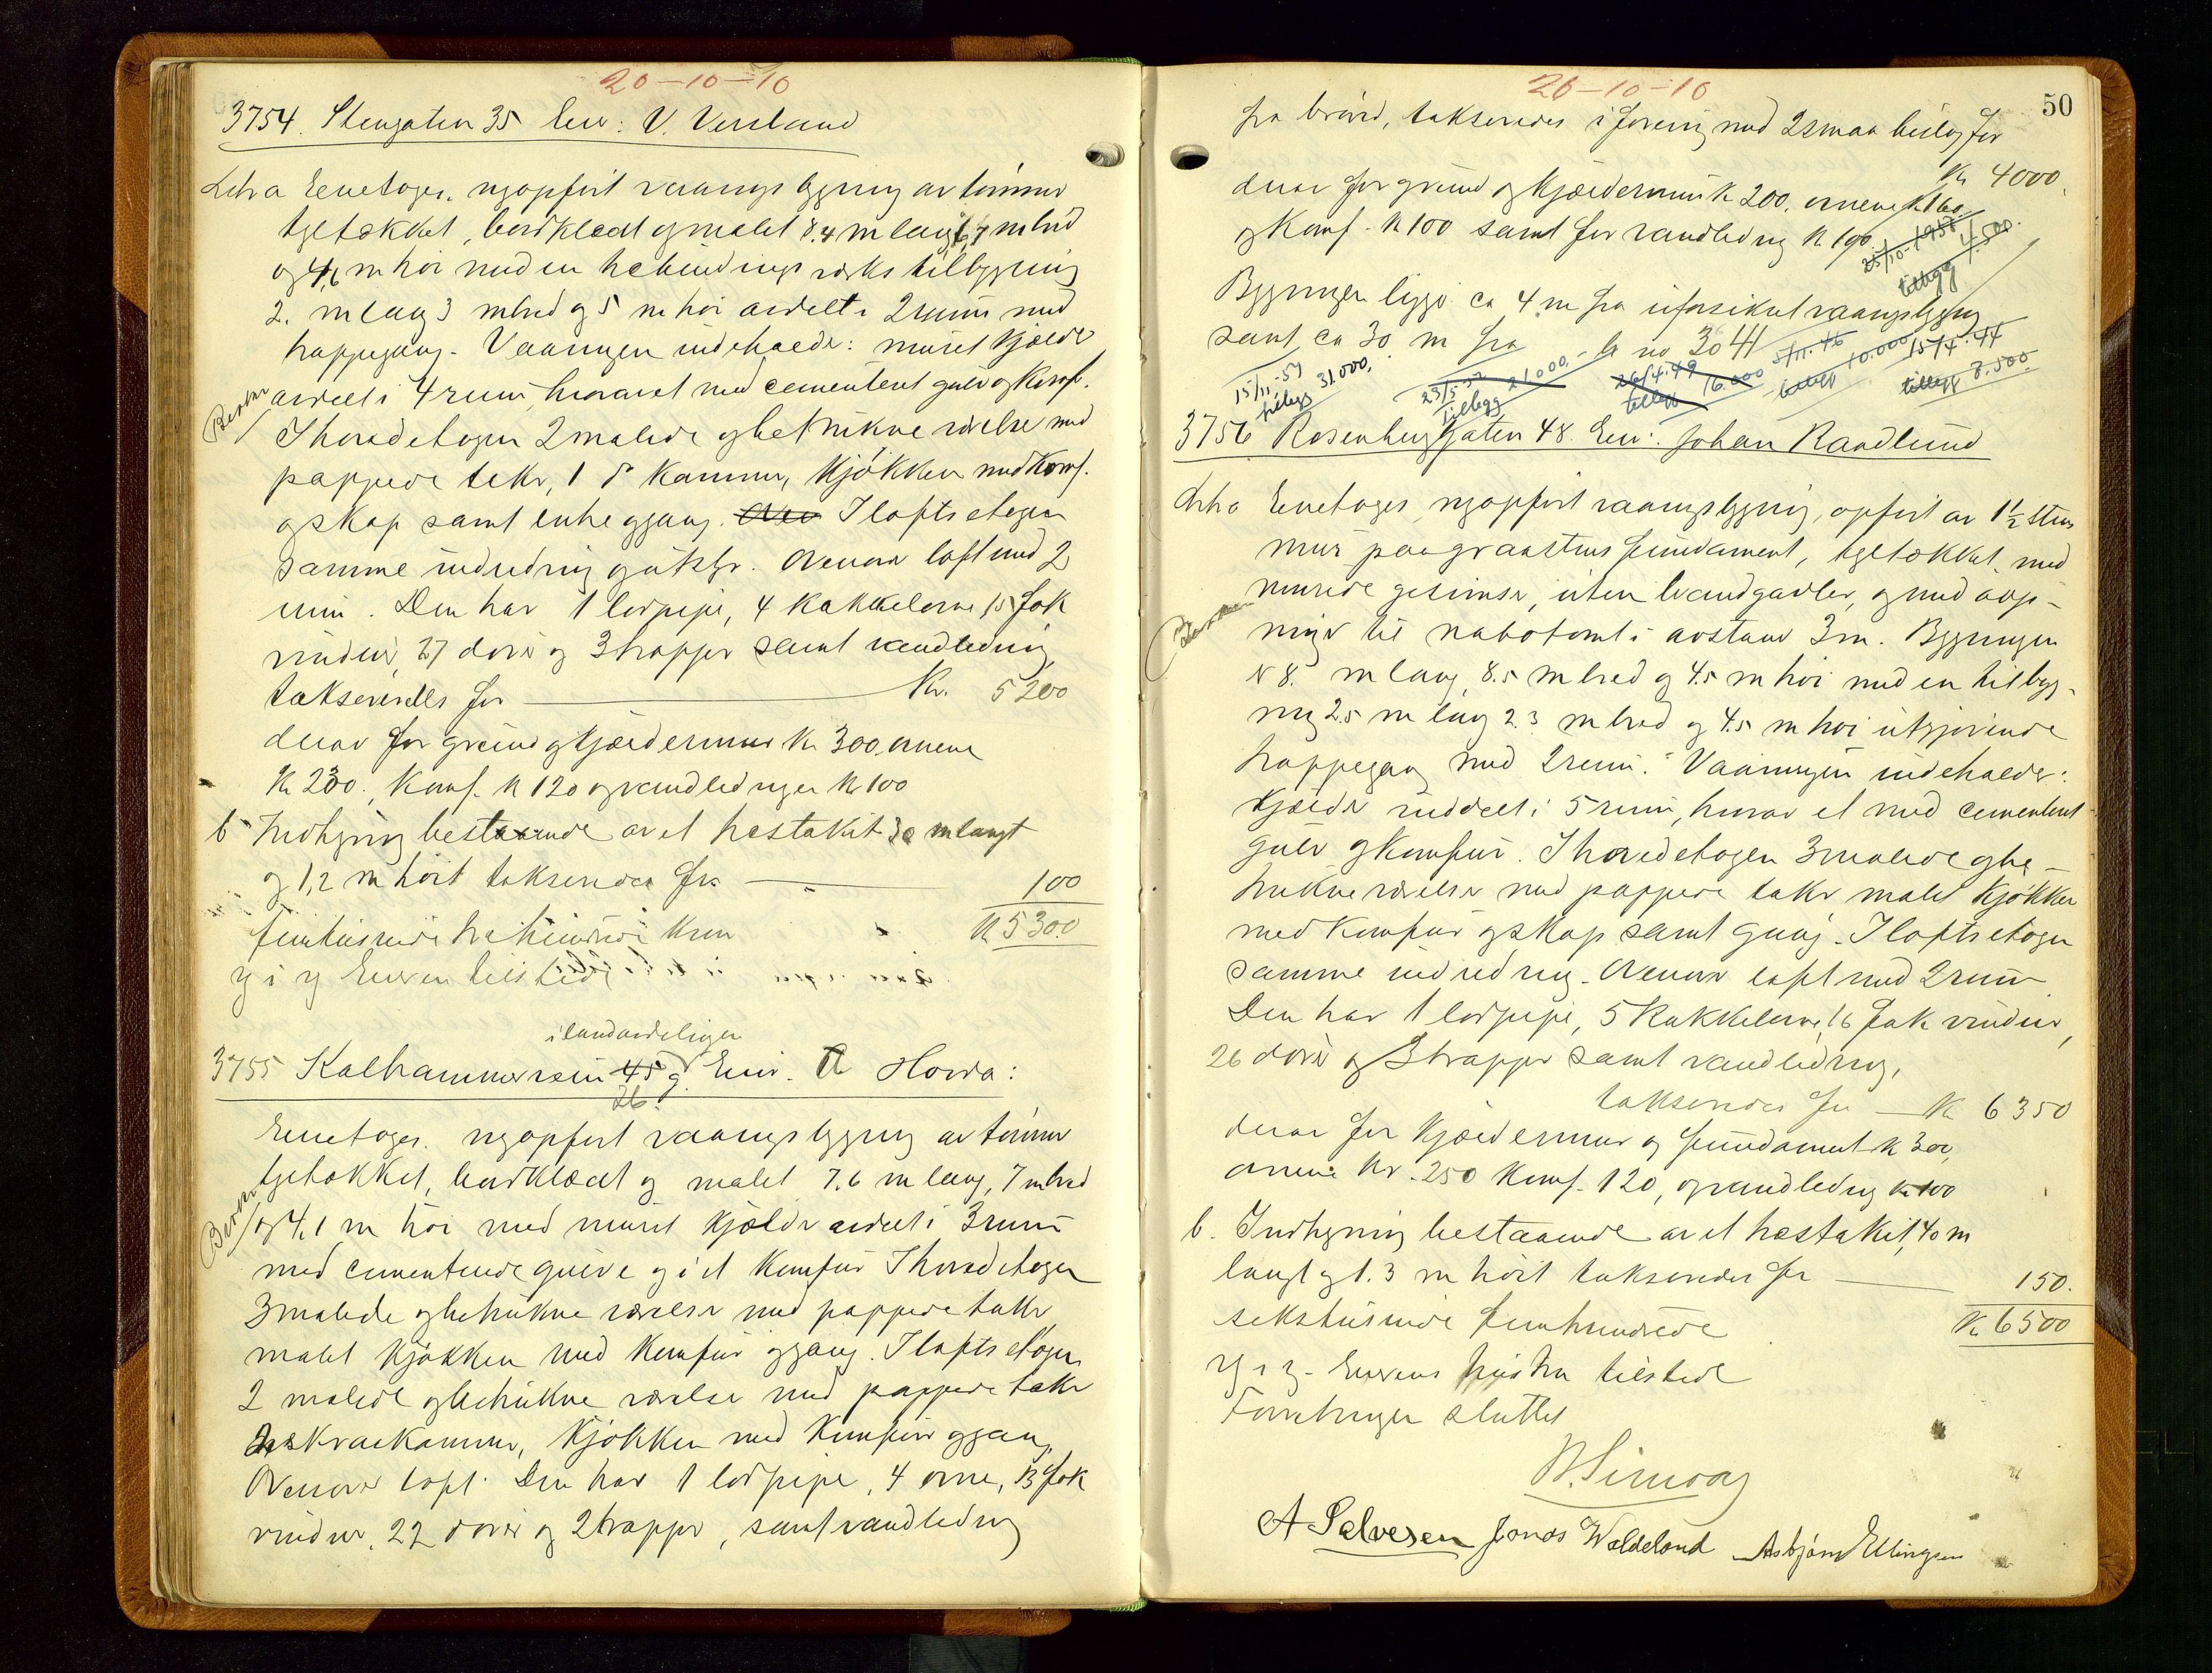 20-10-10
3754. Stengaten 35 Eier: V. Versland
Litra a Eenetages. nyopført vaaningsbygning av tømmer
teltækket, bordklædt og malet 8.4 m lang 6,7 m bred
og 4,6 m høi med en halvbindingsverks tilbygning
2. m lang 3 m bred og 5 m høi avdelt i 2 rum med
trappegang. Vaaningen indeholder: muret kjælder
avdelt i 4 rum hvorav et med cementeret gulv og komf.
I hovedetagen 2 malede og betrukne værelser med
pappede takr, 1 do kammer, kjøkken med komf.
og skap samt entre og gang. I loftsetagen
samme indredning og utstyr. Ovenover loft med 2
rum. Den har 1 lodpipe, 4 kakkelovne 15 fak
vinduer, 27 døre og 3 trapper samt vandledning
takseredes for Kr. 5200
derav for grund og kjældermur Kr 300, ovnene
Kr 230., Komf. Kr 120 og vandledningen Kr 100
b Indhegning bestaaende av et hestakit 30 m langt
og 1,2 m høit takseredes for 100
femtusinde trehundrede kroner Kr 5300
Eieren tilstede
ilandavdelingen
3755 Kalhammerveien 45 g Eier. A Hovda:
26.
Eenetages. nyopført vaaningsbygning av tømmer
teltækket, bordklædt og malet 7.6 m lang, 7 m bred
og 4,1 m høi med muret kjælder avdelt i 3 rum
med cementerede gulve og i et komfur I hovedetagen
3 malede og betrukne værelser med pappede takr,
malet kjøkken med komfur og gang. I loftsetagen
2 malede og betrukne værelser med pappede takr
skraakammer, kjøkken med komfur og gang.
Ovenover loft. Den har 1 lodpipe, 4 ovne, 13 fak
vinduer, 22 døre og 2 trapper, samt vandledning
20-10-10
50
takseredes i forening med 2 smaa bislag for
Kr 4000.
derav for grund og kjældermur Kr 200. ovnene Kr 160
og Komf. Kr 100 samt for vandledning Kr 100
25/10. 1951
tillegg 4.500.
Bygningen ligger ca 4 m fra uforsikret vaaningsbygning
samt ca 30 m fra no 3041
15/11.57 tillegg 31000.
23/5.52 tillegg 21000.
26/4.49 tillegg 16.000
5/11.46 tillegg 10.000
15/4.44 tillegg 8.500.
3756 Rosenberggaten 48. Eier: Johan Randlund
Litra Eenetages nyopført vaaningsbygning, opført av 1½ stens
mur paa graastens fundament, teltækket, med
murede gesimser, uten brandgavler, og med aap-
ning til nabotomt i avstand 3 m. Bygningen
er 8. m lang, 8.5 m bred og 4.5 m høi med en tilbyg-
ning 2.5 m lang 2.3 m bred og 4.5 m høi utgjørende
trappegang med 2 rum. Vaaningen indeholder:
kjælder inddelt i 5 rum, hvorav et med cementeret
gulv og komfur. I hovedetagen 3 malede og be-
trukne værelser med pappede takr malet kjøkken
med komfur og skap samt gang. I loftsetagen
samme indredning. Ovenover loft med 2 rum
Den har 1 lodpipe, 5 kakkelovne, 16 fak vinduer,
26 døre og 3 trapper samt vandledning,
takseredes for Kr 6350
derav for kjældermur og fundament Kr 300,
ovnene Kr. 250 Komf. 120, og vandledning Kr 100
b. Indhegning bestaaende av et hestakit, 40 m
langt og 1.3 m høit takseredes for 150.
sekstusinde femhundrede Kr 6500
Eierens hustru tilstede
Forretningen sluttet
A Salvesen Jonas Waldeland Asbjørn Ellingsen